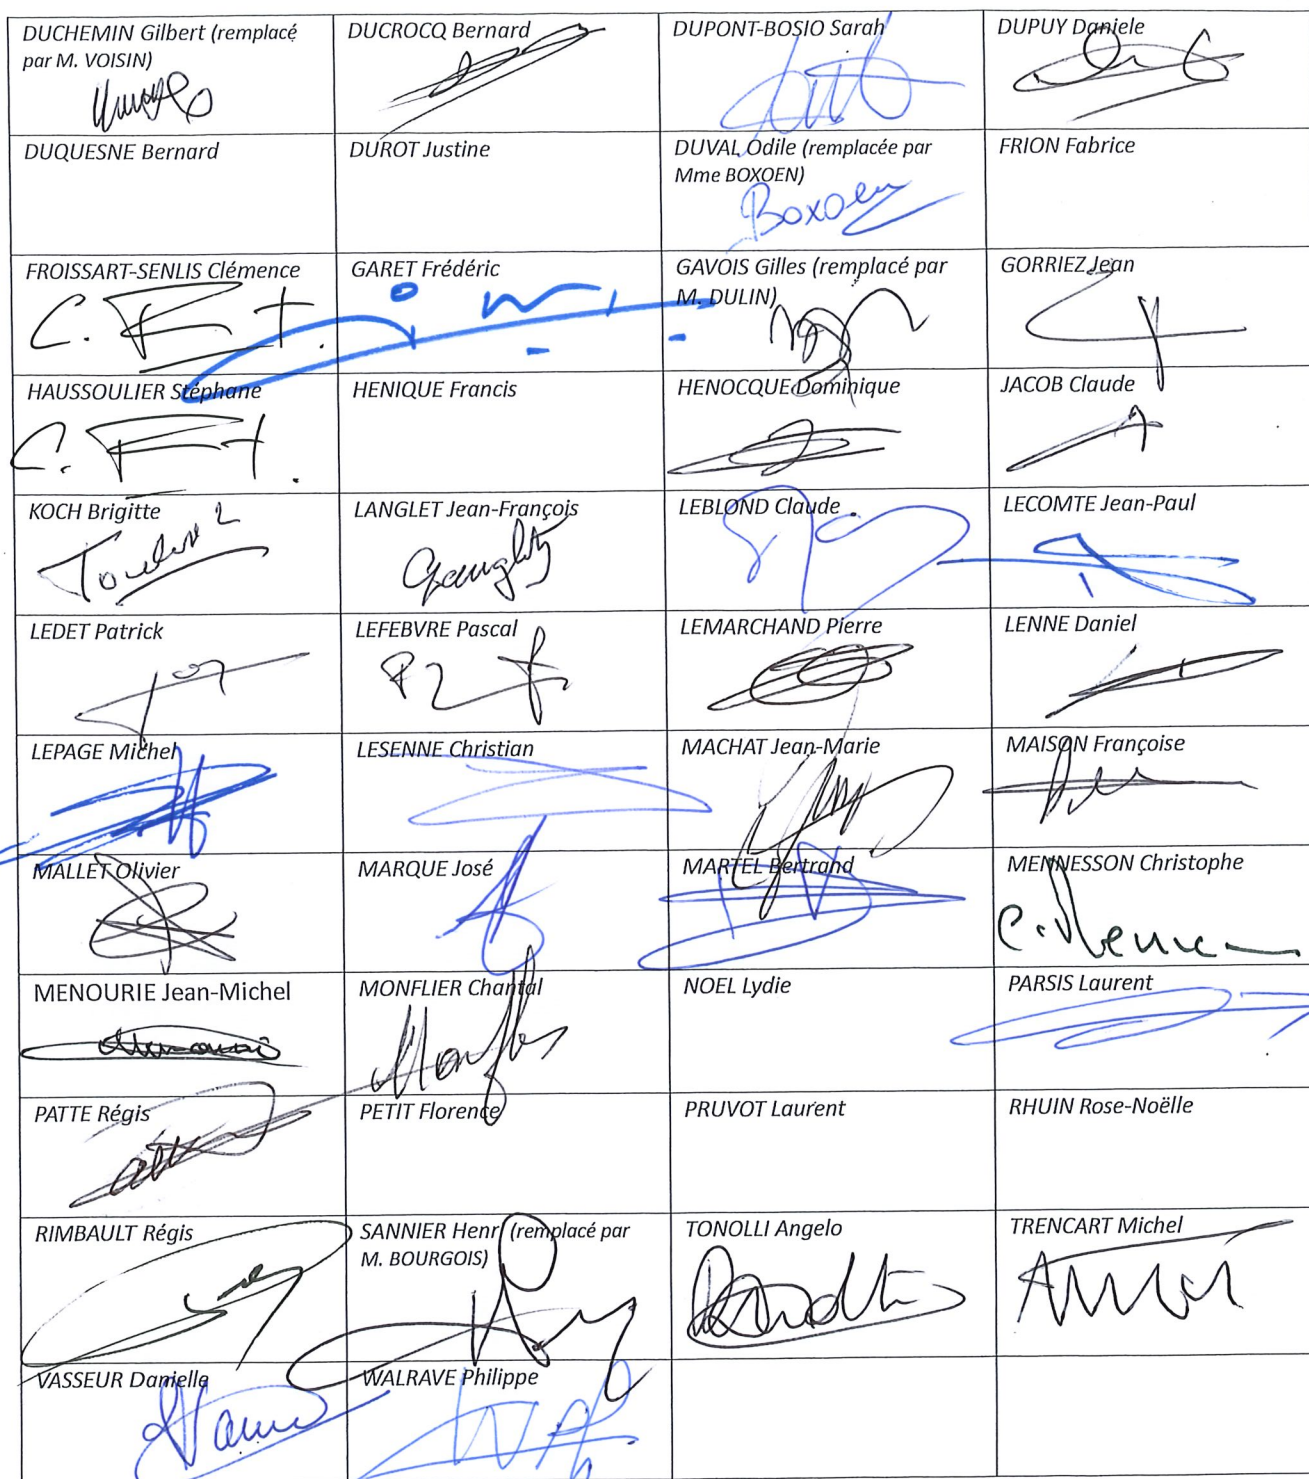 DUCHEMIN Gilbert (remplacé
par M. VOISIN)
DUCROCQ Bernard
DUPONT-BOSIO Sarah
DUPUY Daniele
DUQUESNE Bernard
DUROT Justine
DUVAL Odile (remplacée par
Mme BOXOEN)
Boxoen
FRION Fabrice
FROISSART-SENLIS Clémence
GARET Frédéric
GAVOIS Gilles (remplacé par
M. DULIN)
GORRIEZ Jean
HAUSSOULIER Stéphane
HENIQUE Francis
HENOCQUE Dominique
JACOB Claude
KOCH Brigitte
LANGLET Jean-François
LEBLOND Claude
LECOMTE Jean-Paul
LEDET Patrick
LEFEBVRE Pascal
LEMARCHAND Pierre
LENNE Daniel
LEPAGE Michel
LESENNE Christian
MACHAT Jean-Marie
MAISON Françoise
MALLET Olivier
MARQUE José
MARTEL Bertrand
MENNESSON Christophe
MENOURIE Jean-Michel
MONFLIER Chantal
NOEL Lydie
PARSIS Laurent
PATTE Régis
PETIT Florence
PRUVOT Laurent
RHUIN Rose-Noëlle
RIMBAULT Régis
SANNIER Henri (remplacé par
M. BOURGOIS)
TONOLLI Angelo
TRENCART Michel
VASSEUR Danielle
WALRAVE Philippe